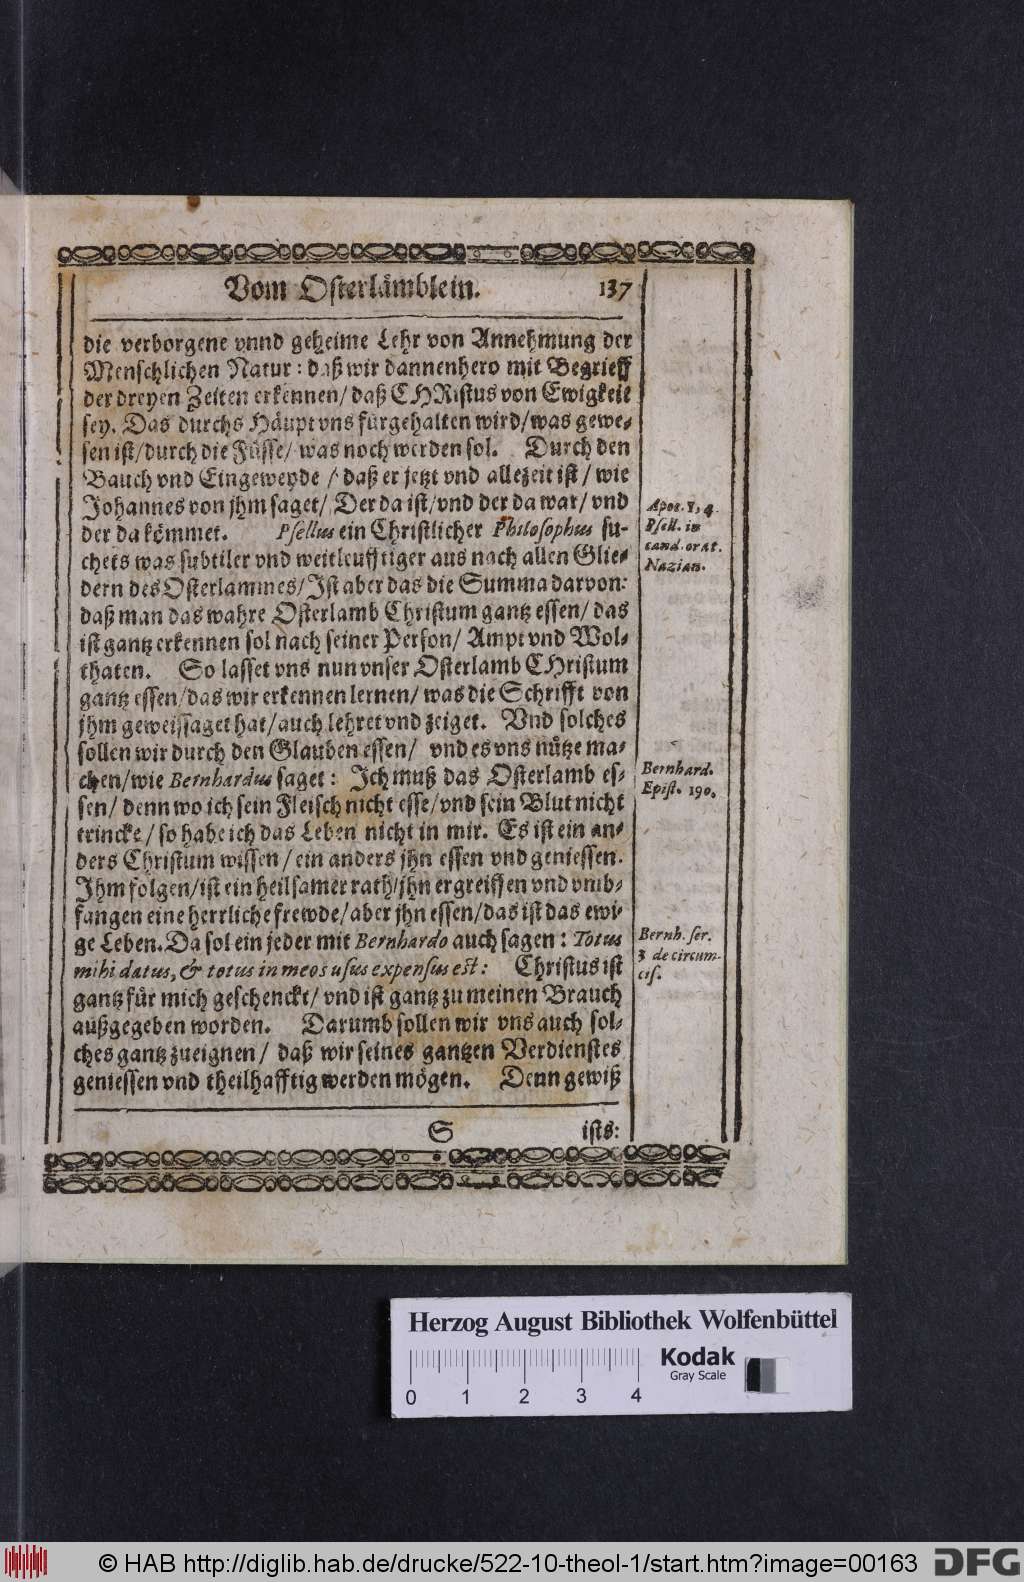 Vom Osterlämblein. 137
die verborgene vnnd geheime Lehr von Annehmung der
Menschlichen Natur: daß wir dannenhero mit Begrieff
der dreyen Zeiten erkennen/ daß CHRistus von Ewigkeit
sey. Das durchs Häupt vns fürgehalten wird/ was gewe-
sen ist/ durch die Füsse/ was noch werden sol. Durch den
Bauch vnd Eingeweyde / daß er jetzt vnd allezeit ist / wie
Johannes von jhm saget/ Der da ist/ vnd der da war/ vnd
der da kömmet. Psellus ein Christlicher Philosophus su-
chets was subtiler vnd weitleufftiger aus nach allen Glie-
dern des Osterlammes/ Ist aber das die Summa darvon:
daß man das wahre Osterlamb Christum gantz essen/ das
ist gantz erkennen sol nach seiner Person/ Ampt vnd Wol-
thaten. So lasset vns nun vnser Osterlamb CHristum
gantz essen/ das wir erkennen lernen/ was die Schrifft von
jhm geweissaget hat/ auch lehret vnd zeiget. Vnd solches
sollen wir durch den Glauben essen/ vnd es vns nütze ma-
chen/ wie Bernhardus saget: Ich muß das Osterlamb es-
sen/ denn wo ich sein Fleisch nicht esse/ vnd sein Blut nicht
trincke/ so habe ich das Leben nicht in mir. Es ist ein an-
ders Christum wissen/ ein anders jhn essen vnd geniessen.
Ihm folgen/ ist ein heilsamer rath/ jhn ergreiffen vnd vmb-
fangen eine herrliche frewde/ aber jhn essen/ das ist das ewi-
ge Leben. Da sol ein jeder mit Bernhardo auch sagen: Totus
mihi datus, & totus in meos usus expensus est: Christus ist
gantz für mich geschenckt/ vnd ist gantz zu meinen Brauch
außgegeben worden. Darumb sollen wir vns auch sol-
ches gantz zueignen/ daß wir seines gantzen Verdienstes
geniessen vnd theilhafftig werden mögen. Denn gewiß
S ists:
Apoc. 1, 4.
Psell. in
cand. orat.
Nazian.
Bernhard.
Epist. 190.
Bernh. ser.
3 de circum-
cis.
Herzog August Bibliothek Wolfenbüttel
Kodak
Gray Scale
0 1 2 3 4
© HAB http://diglib.hab.de/drucke/522-10-theol-1/start.htm?image=00163
DFG